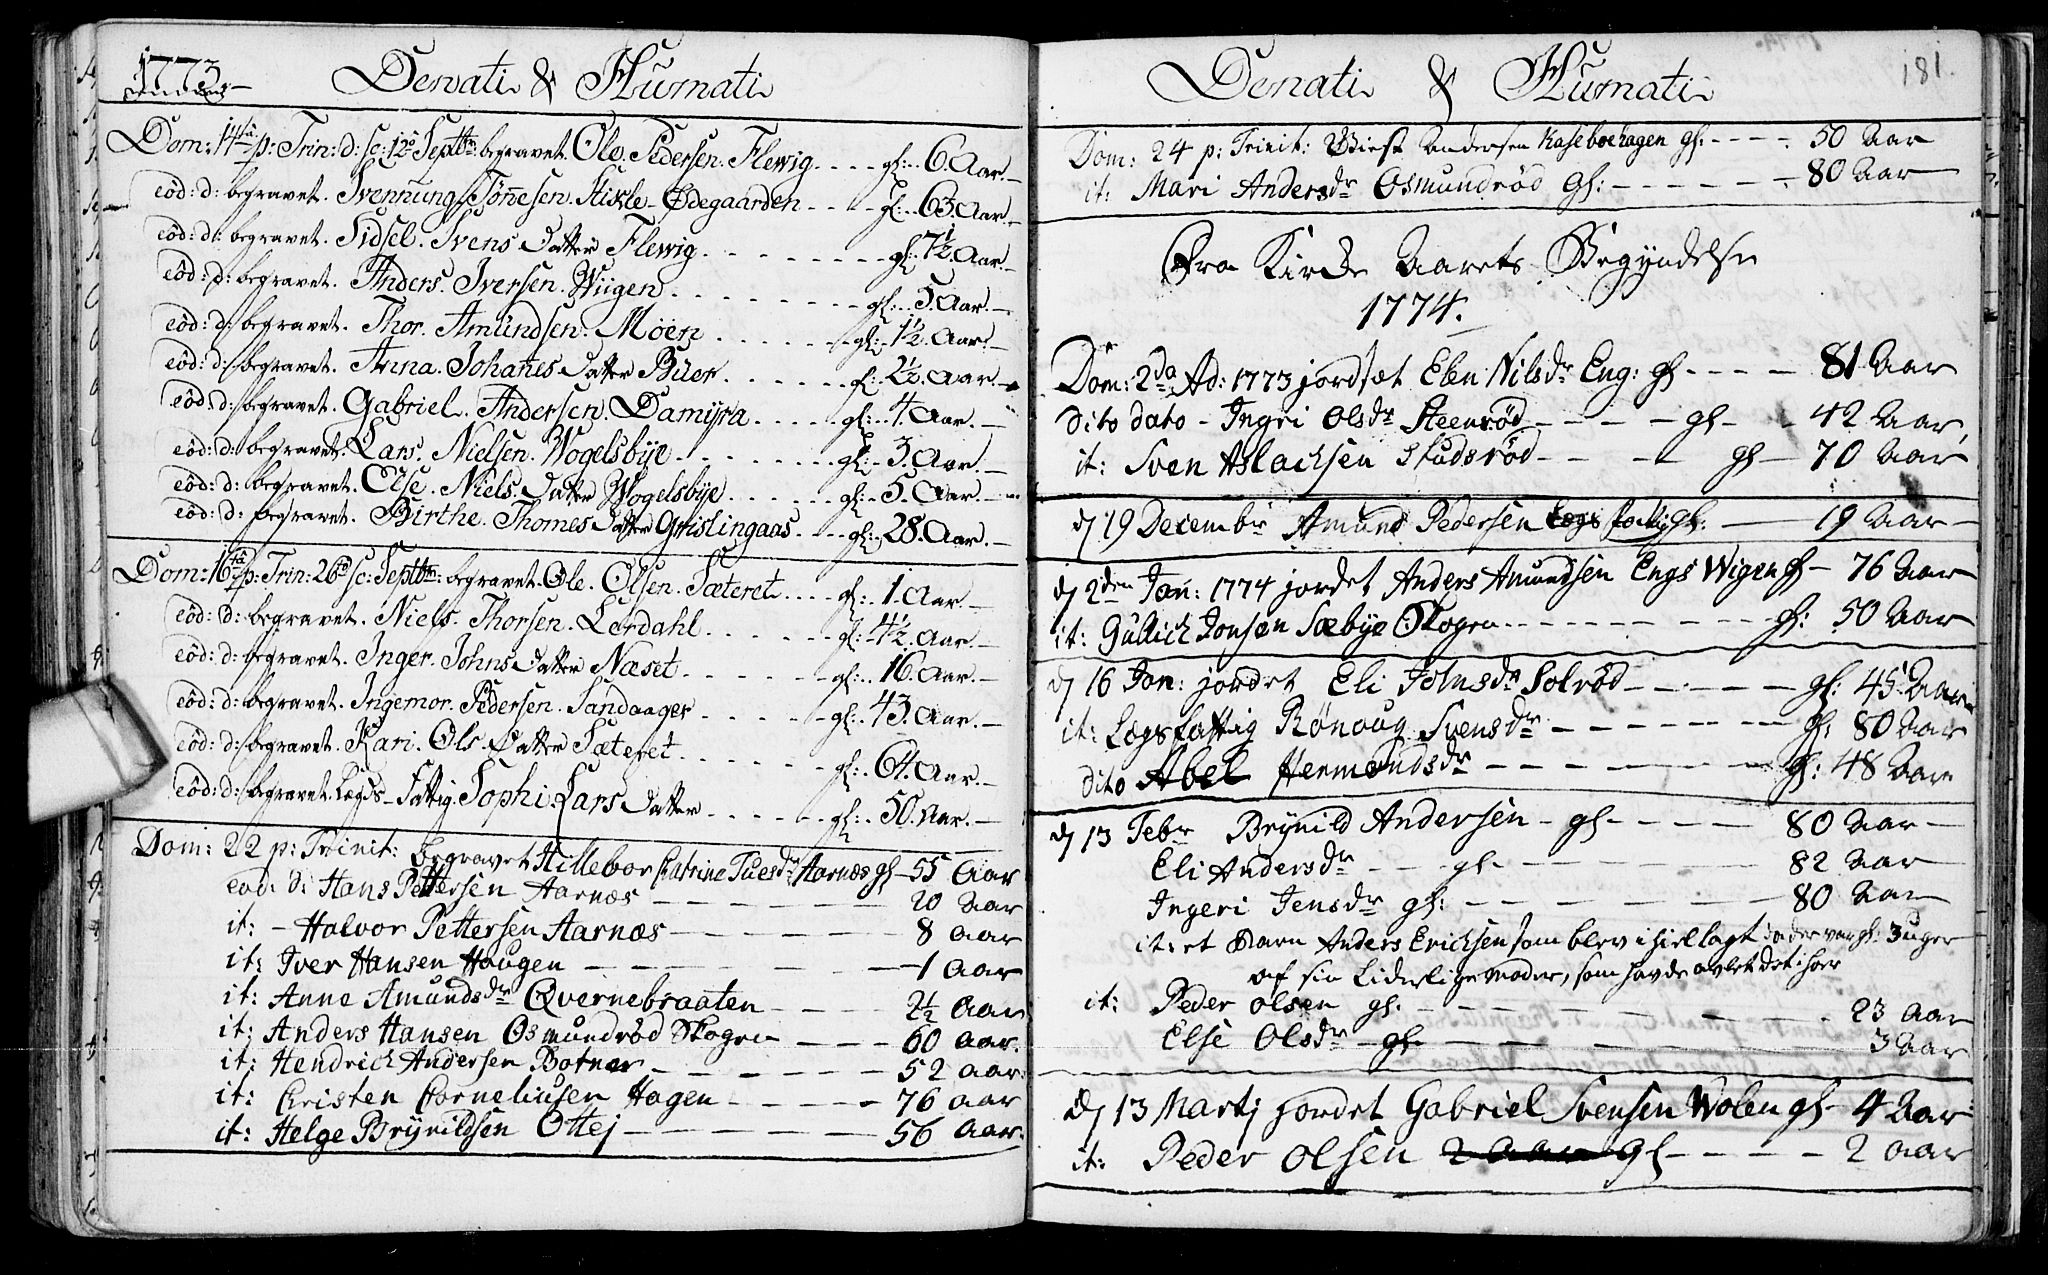 1773
Denati & Humati
Dom: 14 p: Trin: d: sc: 12 Septbr begravet. Ole. Pedersen. Flewig.... gl:.. 6. Aar.
eôd: d: begravet. Svennung. Tönesen. - Ødegaarden - - - gl: .. 63. Aar.
eôd: d: begravet. Sidsel. Svens Datter Flewig. . . . . gl: 7½. Aar.
eôd: d: begravet. Anders. Iversen. Wiigen . . . . . gl: .. 5. Aar.
eôd: d: begravet. Thor. Amundsen. Moen . . . . . gl: .. 1½. Aar.
eôd: d: begravet. Anna. Johanes Datter Büer . . . . . gl: .. 2½. Aar.
eôd: d: begravet. Gabriel. Andersen. Damÿra . . . . gl: .. 4. Aar.
eôd: d: begravet. Lars. Nielsen. Wogelsbÿe . . . . . gl: .. 3. Aar.
eôd: d: begravet. Else. Niels Datter Wogelsbÿe . . . . gl: .. 5. Aar.
eôd: d: begravet. Birthe. Thomes Datter Grislingaas . . . gl: .. 28. Aar.
Dom: 16 p: Trin: 26 sc: Septbr: begravet. Ole. Olsen. Sæteret . . . gl: .. 1. Aar.
eôd: d: begravet. Niels. Thorsen. Lerdahl . . . . . gl: .. 4½. Aar.
eôd: d: begravet. Inger. Johns Datter Næset . . . . . gl: .. 16. Aar.
eôd: d: begravet. Ingemor. Pedersen. Sandaager . . . . gl: .. 43. Aar.
eôd: d: begravet. Kari. Ols Datter Sæteret . . . . . gl: .. 64. Aar.
eôd: d: begravet. Lægds - Fattig. Sophi. Lars Datter . . . . gl: .. 50. Aar.
Dom: 22 p: Trinit: begravet Hillebor Catrine Tuesdr Aarnæs gl - 55 Aar
eod: d: Hans Pettersen Aarnæs - - - - 20 Aar
it: - Halvor Pettersen Aarnæs - - - - 8 Aar
it: Iver Hansen Haugen - - - - 1 Aar
it: Anne Amundsdr Qvernebraaten - - - - 2½ Aar
it: Anders Hansen Osmundrød Skogen - - - 60 Aar.
it: Hendrich Andersen Botner - - - - 52 Aar:
it: Christen Corneliusen Hagen - - - - 76 Aar
it: Helge Brÿnildsen Ottej - - - - 56 Aar:
Denati & Humati
181.
Dom: 24 p: Trinit: Andersen Kaseboehagen gl: - - - - 50 Aar
it: Mari Andersdr Osmundrød gl: - - - - 80 Aar
Fra Kirke Aarets Begÿndelse
1774.
Dom: 2da Ad: 1773 jordset Elen Nilsdr Eng: gl - - - - 81 Aar
dito dato - Ingri Olsdr Steenrød - - - - gl - - 42 Aar,
it: Sven Aslachsen Studsrød - - - - gl - 70 Aar
d 19 Decembr Amund Pedersen Lægs fattig gl: - 19 Aar
d 2den Jan: 1774 jordet Anders Amundsen Engs Wigen gl - 76 Aar
it: Gullich Jonsen Sæbÿe Skogen - - - - gl: 50 Aar
d 16 Jan: jordet Eli Johnsdr Solrød - - - - gl: 45 Aar
it: Lægsfattig Rønoug Svensdr - - - - gl: 80 Aar
dito Abel Hermandsdr - - - - gl: 48 Aar
d 13 Febr Brÿnild Andersen - gl - - - - 80 Aar
Eli Andersdr - - gl - - - - 82 Aar
Ingeri Jensdr gl: - - - - 80 Aar
it: et Barn Anders Erichsen som blev ihiellagt da der var gl: 3 uger
af sin Liderlige Moder, som havde avlet det i hoer
it: Peder Olsen gl: - - - - 23 Aar
Else Olsdr gl: - - - - 3 Aar
d 13 Martj jordet Gabriel Svensen Wolen gl - 4 Aar
it: Peder Olsen 2 Aar gl - - - - 2 Aar